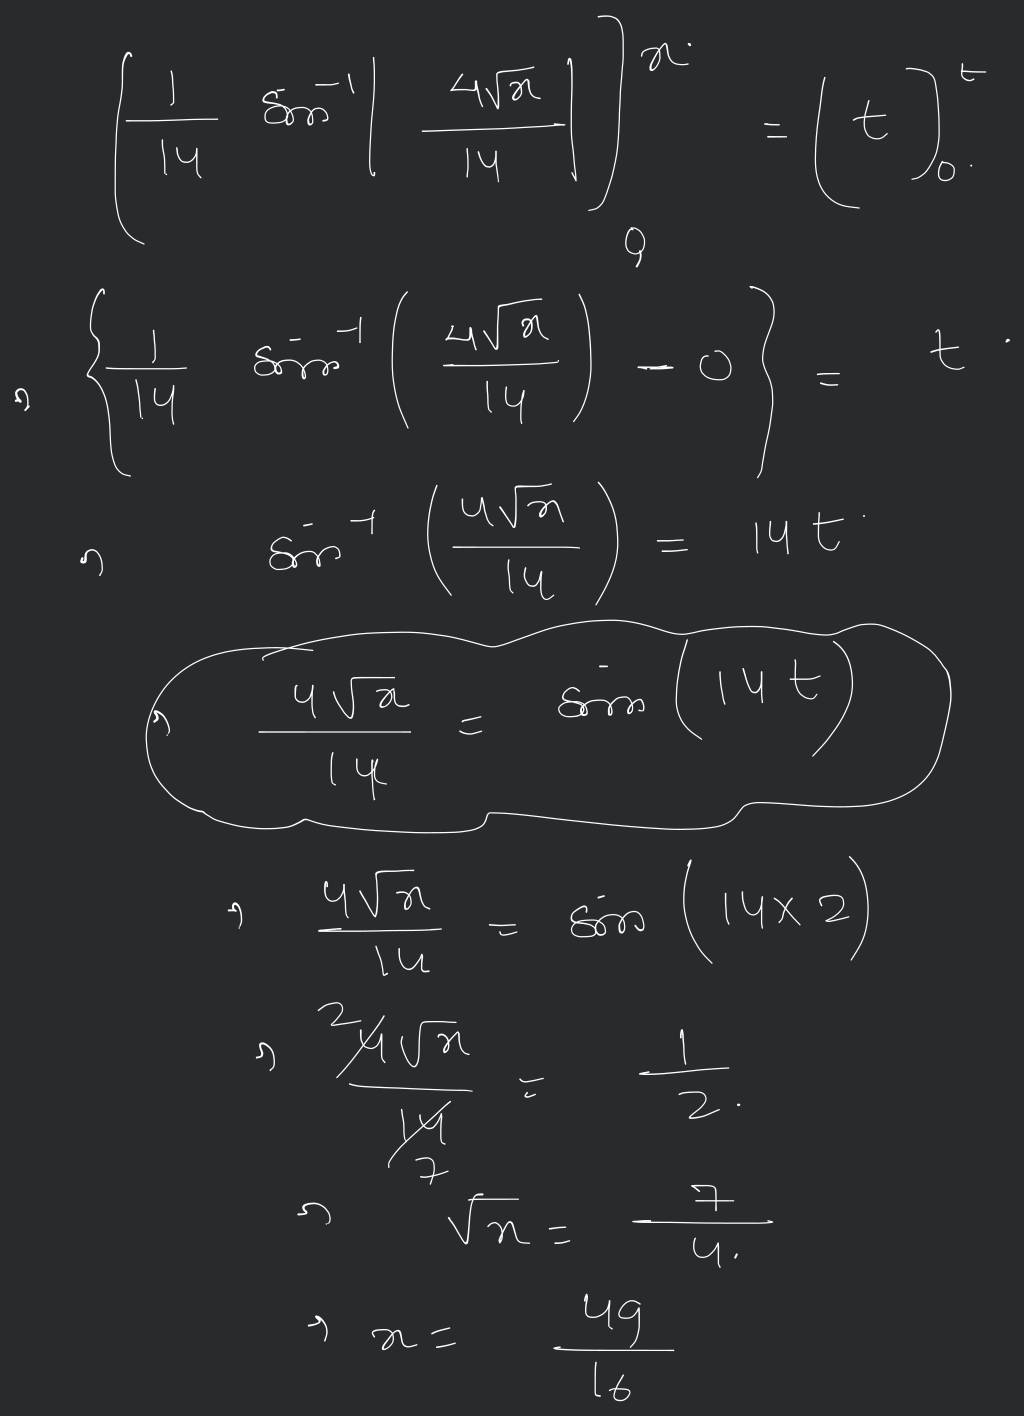 [1/14 sin⁻¹| 4√x/14 |]₀ˣ = [t]₀ᵗ
⇒ {1/14 sin⁻¹(4√x/14) - 0} = t
⇒ sin⁻¹(4√x/14) = 14t
⇒ 4√x/14 = sin(14t)
⇒ 4√x/14 = sin(14×2)
⇒ 2 4√x/14 7 = 1/2
⇒ √x = 7/4
⇒ x = 49/16